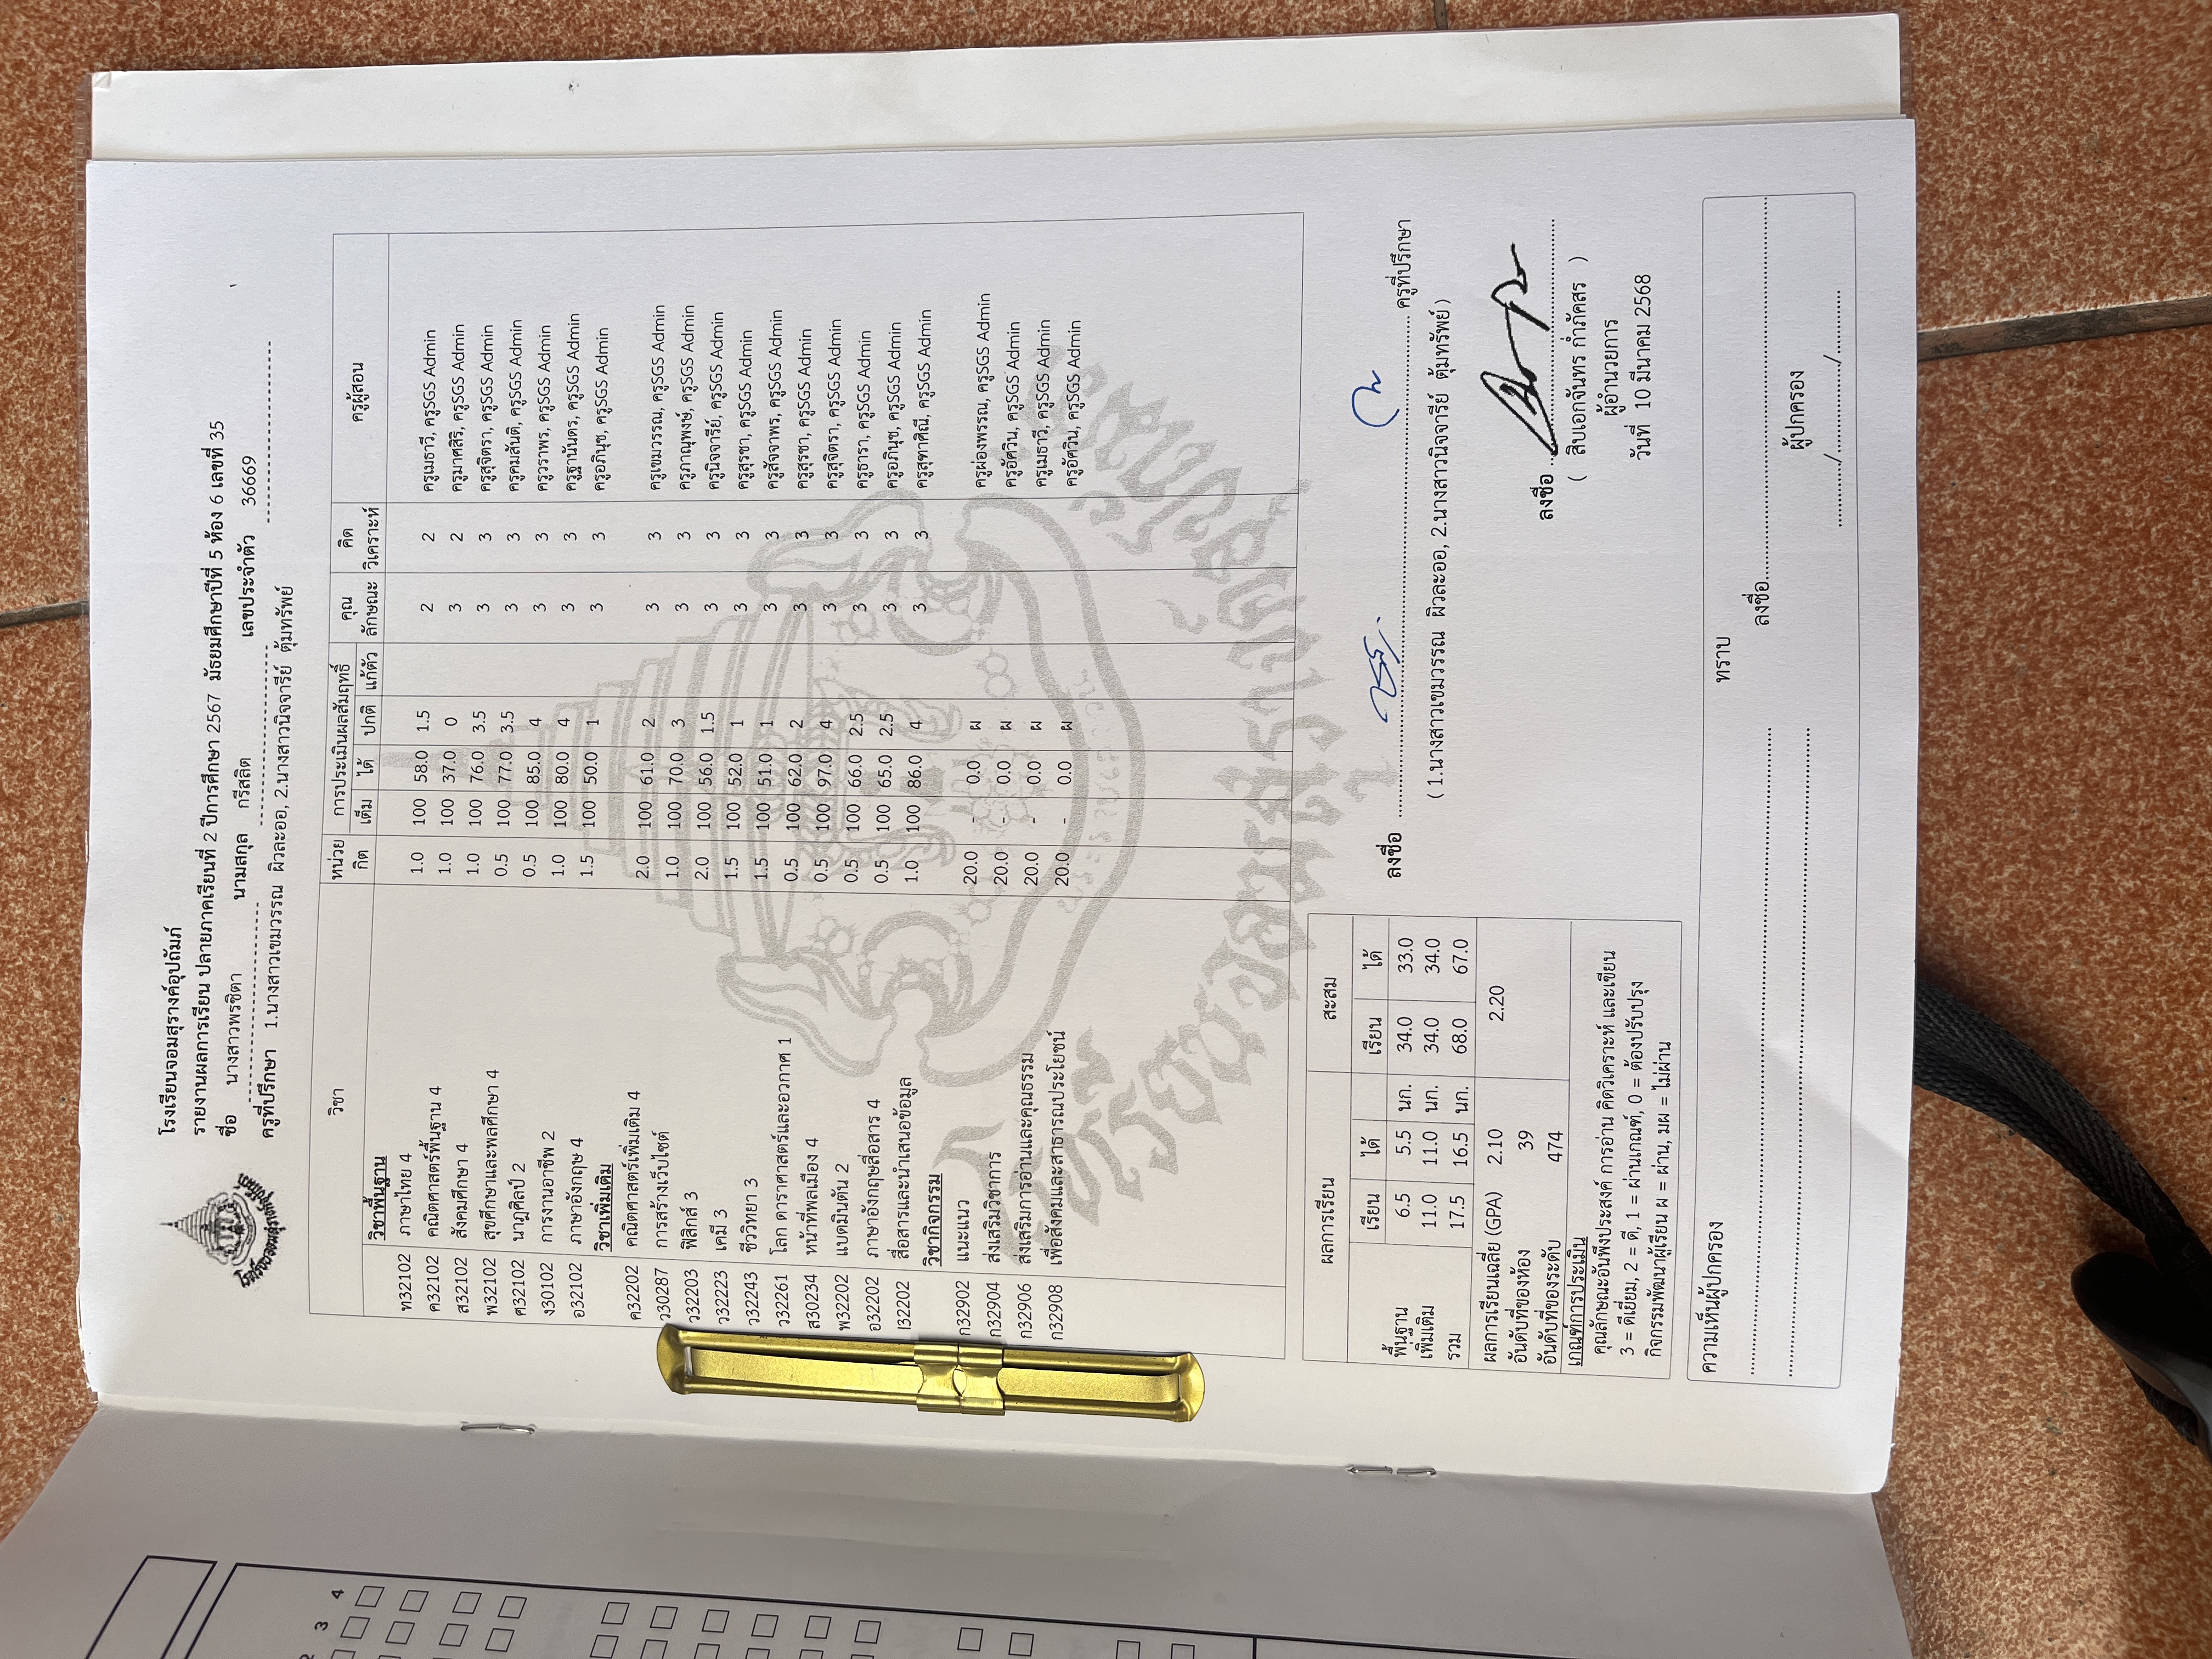 โรงเรียนจอมสุรางค์อุปถัมภ์
รายงานผลการเรียน ปลายภาคเรียนที่ 2 ปีการศึกษา 2567 มัธยมศึกษาปีที่ 5 ห้อง 6 เลขที่ 35
ชื่อ นางสาวพรชิตา นามสกุล กรีสลิต เลขประจำตัว 36669
ครูที่ปรึกษา 1.นางสาวเขมวรรณ ผิวละออ, 2.นางสาวนิจจารีย์ ตุ้มทรัพย์
วิชา หน่วยกิต การประเมินผลสัมฤทธิ์ คุณลักษณะ คิดวิเคราะห์ ครูผู้สอน
เต็ม ได้ ปกติ แก้ตัว
วิชาพื้นฐาน
ท32102 ภาษาไทย 4 1.0 100 58.0 1.5 2 2 ครูเมธาวี, ครูSGS Admin
ค32102 คณิตศาสตร์พื้นฐาน 4 1.0 100 37.0 0 3 2 ครูมาศสิริ, ครูSGS Admin
ส32102 สังคมศึกษา 4 1.0 100 76.0 3.5 3 3 ครูสุจิตรา, ครูSGS Admin
พ32102 สุขศึกษาและพลศึกษา 4 0.5 100 77.0 3.5 3 3 ครูคมสันติ, ครูSGS Admin
ศ32102 นาฏศิลป์ 2 0.5 100 85.0 4 3 3 ครูวราพร, ครูSGS Admin
ง30102 การงานอาชีพ 2 1.0 100 80.0 4 3 3 ครูฐานันดร, ครูSGS Admin
อ32102 ภาษาอังกฤษ 4 1.5 100 50.0 1 3 3 ครูอภินุช, ครูSGS Admin
วิชาเพิ่มเติม
ค32202 คณิตศาสตร์เพิ่มเติม 4 2.0 100 61.0 2 3 3 ครูเขมวรรณ, ครูSGS Admin
ว30287 การสร้างเว็บไซต์ 1.0 100 70.0 3 3 3 ครูภาณุพงษ์, ครูSGS Admin
ว32203 ฟิสิกส์ 3 2.0 100 56.0 1.5 3 3 ครูนิจจารีย์, ครูSGS Admin
ว32223 เคมี 3 1.5 100 52.0 1 3 3 ครูสุรชา, ครูSGS Admin
ว32243 ชีววิทยา 3 1.5 100 51.0 1 3 3 ครูสัจจาพร, ครูSGS Admin
ว32261 โลก ดาราศาสตร์และอวกาศ 1 0.5 100 62.0 2 3 3 ครูสุรชา, ครูSGS Admin
ส30234 หน้าที่พลเมือง 4 0.5 100 97.0 4 3 3 ครูสุจิตรา, ครูSGS Admin
พ32202 แบดมินตัน 2 0.5 100 66.0 2.5 3 3 ครูธารา, ครูSGS Admin
อ32202 ภาษาอังกฤษสื่อสาร 4 0.5 100 65.0 2.5 3 3 ครูอภินุช, ครูSGS Admin
I32202 สื่อสารและนำเสนอข้อมูล 1.0 100 86.0 4 3 3 ครูสุฑาศิณี, ครูSGS Admin
วิชากิจกรรม
ก32902 แนะแนว 20.0 - 0.0 ผ ครูผ่องพรรณ, ครูSGS Admin
ก32904 ส่งเสริมวิชาการ 20.0 - 0.0 ผ ครูอัศวิน, ครูSGS Admin
ก32906 ส่งเสริมการอ่านและคุณธรรม 20.0 - 0.0 ผ ครูเมธาวี, ครูSGS Admin
ก32908 เพื่อสังคมและสาธารณประโยชน์ 20.0 - 0.0 ผ ครูอัศวิน, ครูSGS Admin
โรงเรียนจอมสุรางค์อุปถัมภ์
ผลการเรียน สะสม
เรียน ได้ เรียน ได้
พื้นฐาน 6.5 5.5 นก. 34.0 33.0
เพิ่มเติม 11.0 11.0 นก. 34.0 34.0
รวม 17.5 16.5 นก. 68.0 67.0
ผลการเรียนเฉลี่ย (GPA) 2.10 2.20
อันดับที่ของห้อง 39
อันดับที่ของระดับ 474
เกณฑ์การประเมิน
คุณลักษณะอันพึงประสงค์ การอ่าน คิดวิเคราะห์ และเขียน
3 = ดีเยี่ยม, 2 = ดี, 1 = ผ่านเกณฑ์, 0 = ต้องปรับปรุง
กิจกรรมพัฒนาผู้เรียน ผ = ผ่าน, มผ = ไม่ผ่าน
ลงชื่อ ครูที่ปรึกษา
( 1.นางสาวเขมวรรณ ผิวละออ, 2.นางสาวนิจจารีย์ ตุ้มทรัพย์ )
ลงชื่อ
( สิบเอกจันทร ก่ำภัคสร )
ผู้อำนวยการ
วันที่ 10 มีนาคม 2568
ความเห็นผู้ปกครอง
ทราบ
ลงชื่อ
ผู้ปกครอง
3 4